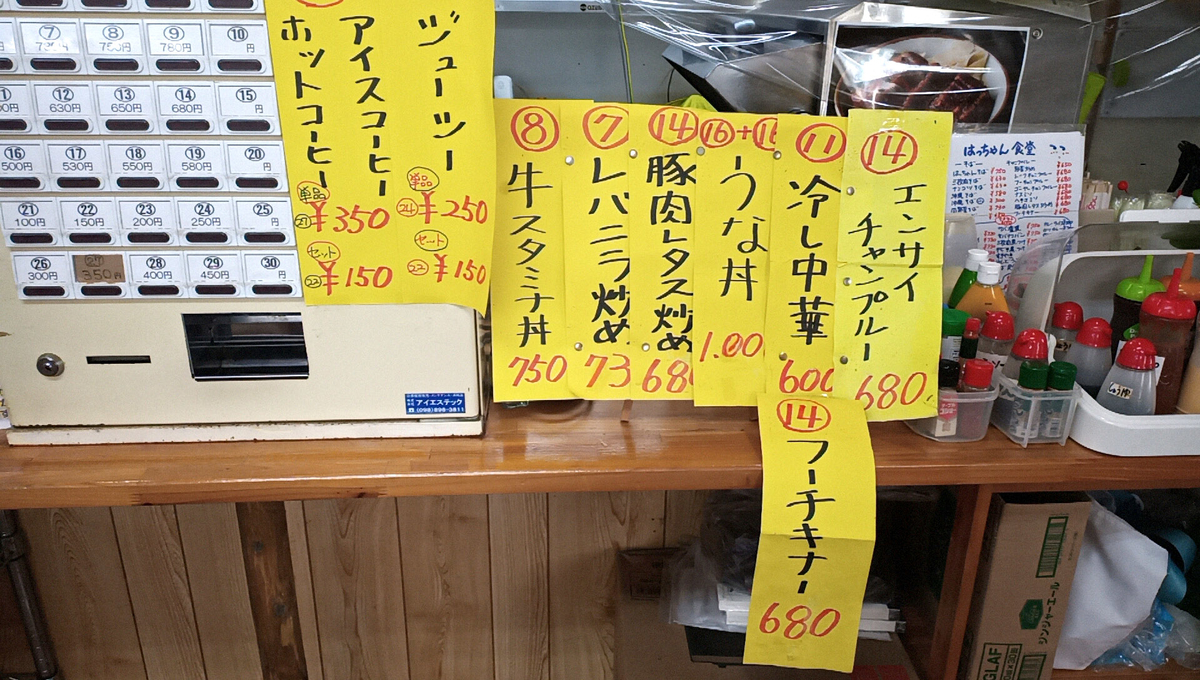 ⑦ ⑧ ⑨ ⑩
750円 780円 円
⑫ ⑬ ⑭ ⑮
630円 650円 680円 円
⑯ ⑰ ⑱ ⑲ ⑳
500円 530円 550円 580円 円
㉑ ㉒ ㉓ ㉔ ㉕
100円 150円 200円 250円 円
㉖ ㉗ ㉘ ㉙ ㉚
300円 350円 400円 450円 円
アイエステック
(098)898-3811
ジューシー
単品
㉔ ¥250
セット
㉒ ¥150
アイスコーヒー
ホットコーヒー
単品
㉗ ¥350
セット
㉒ ¥150
⑧
牛スタミナ丼
750
⑦
レバニラ炒め
73
⑭
豚肉レタス炒め
680
⑯+⑯
うな丼
1.00
⑪
冷し中華
600
⑭
エンサイ
チャンプルー
680
⑭
フーチキナー
680
はっちゃん食堂
ジンジャーエール
GLAF